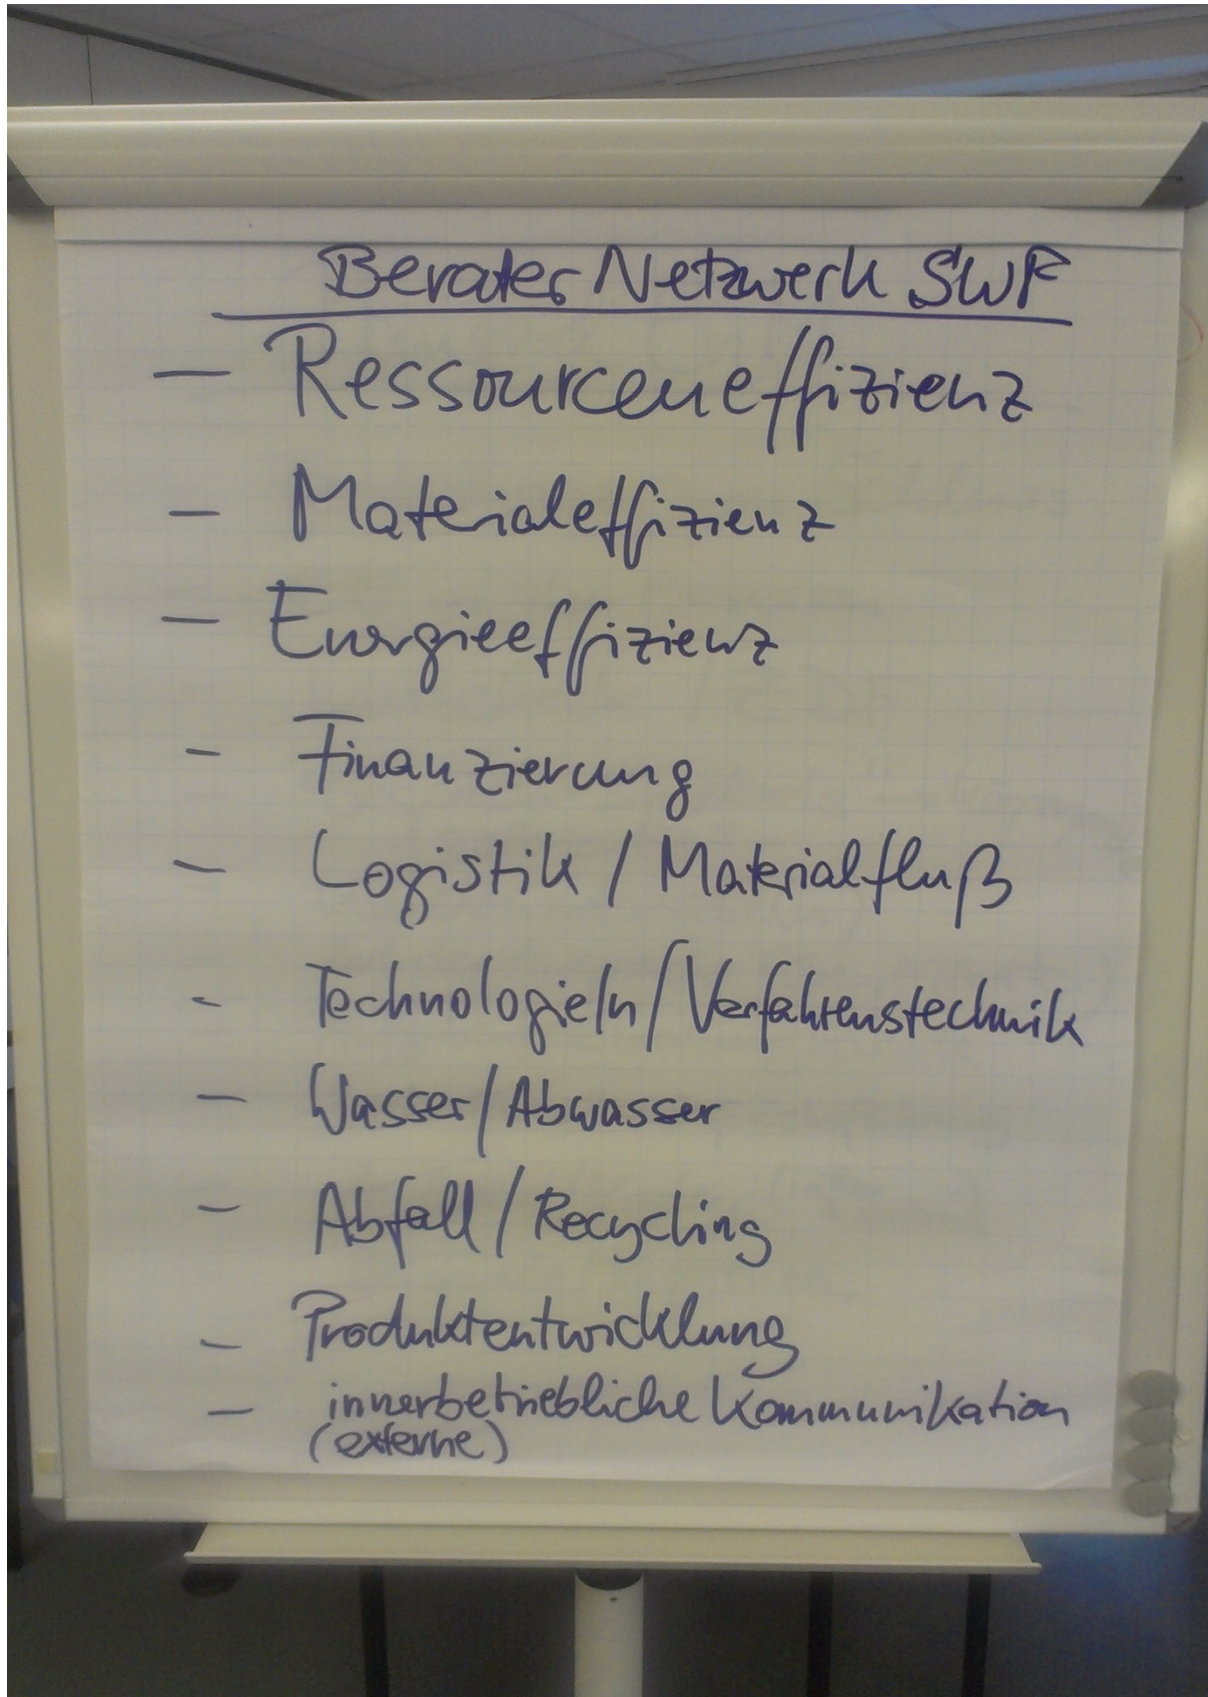 Berater Netzwerk SWF
— Ressourceneffizienz
— Materialeffizienz
— Energieeffizienz
- Finanzierung
— Logistik / Materialfluß
- Technologie/n / Verfahrenstechnik
— Wasser / Abwasser
— Abfall / Recycling
— Produktentwicklung
— innerbetriebliche Kommunikation
(externe)